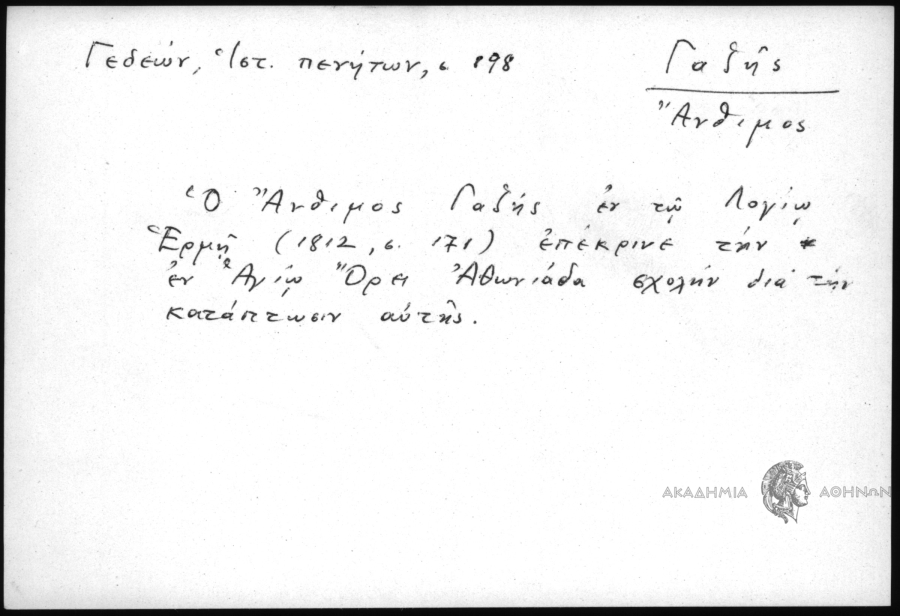 Γεδεών, Ἱστ. πενήτων, σ. 198
Γαζῆς
Ἄνθιμος
Ὁ Ἄνθιμος Γαζῆς ἐν τῷ Λογίῳ
Ἑρμῇ (1812, σ. 171) ἐπέκρινε τὴν
ἐν Ἁγίῳ Ὄρει Ἀθωνιάδα σχολὴν διὰ τὴν
κατάπτωσιν αὐτῆς.
ΑΚΑΔΗΜΙΑ ΑΘΗΝΩΝ